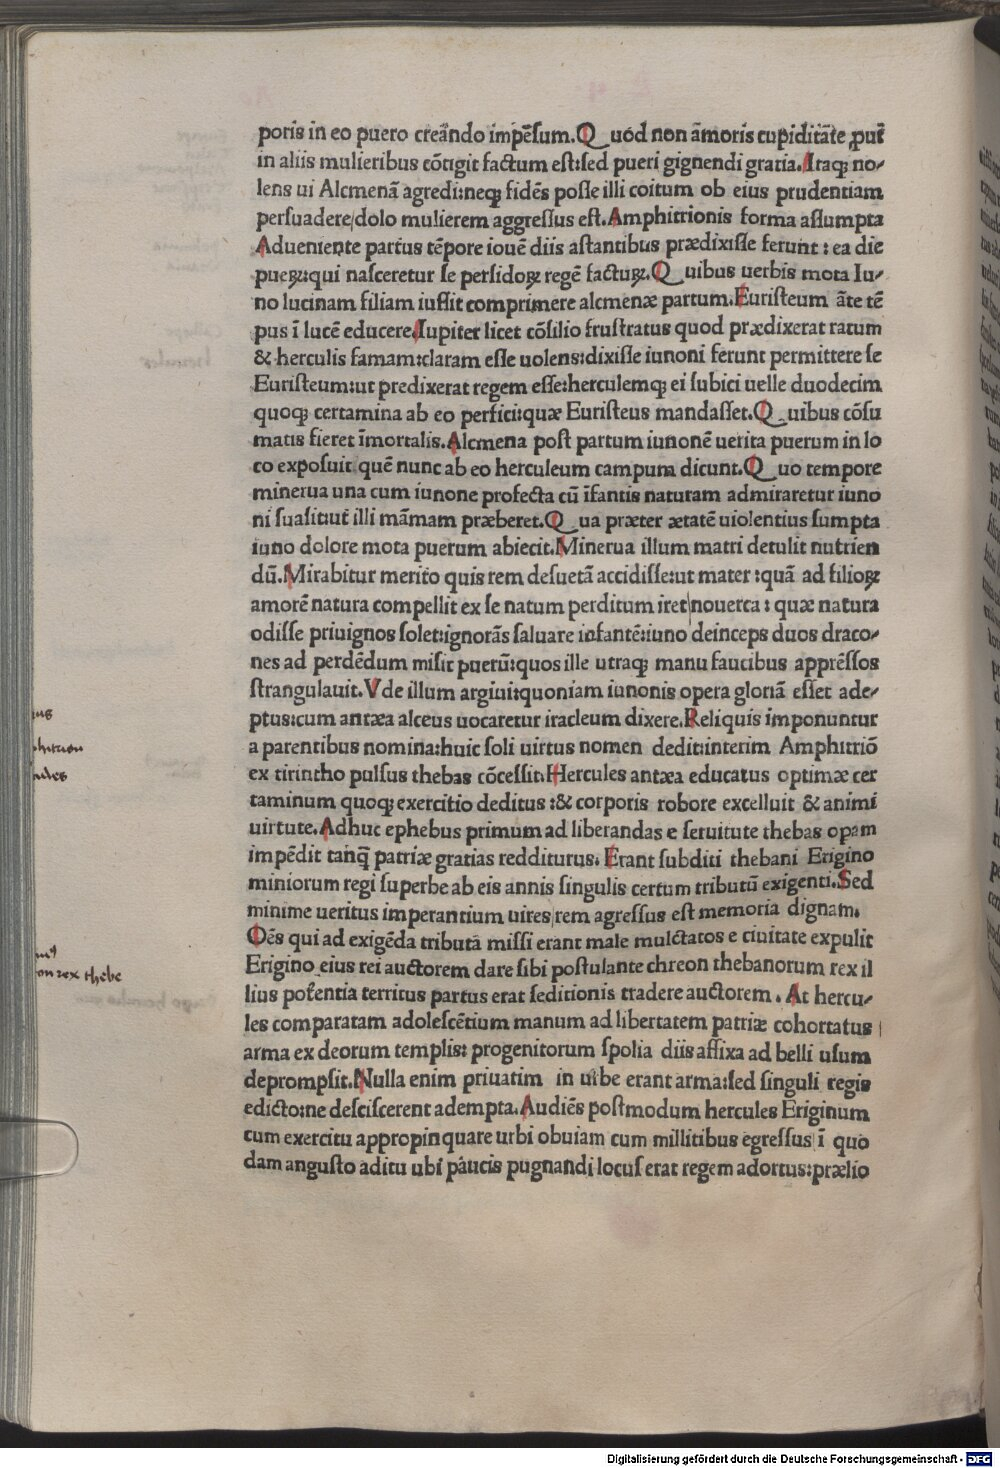 poris in eo puero creãndo impẽsum.Q uod non ãmoris cupiditãte ꝓut
in aliis mulieribus cõtigit factum est:sed pueri gignendi gratia.Itaqꝫ no-
lens ui Alcmenã agredi:neqꝫ fidẽs posse illi coitum ob eius prudentiam
persuadere/dolo mulierem aggressus est.Amphitrionis forma assumpta
Adueniente partus tẽpore iouẽ diis astantibus prædixisse ferunt : ea die
pueꝝ:qui nasceretur se persidoꝝ regẽ factuꝝ.Q uibus uerbis mota Iu-
no lucinam filiam iussit comprimere alcmenæ partum.Euristeum ãte tẽ
pus ĩ lucẽ educere.Iupiter licet cõsilio frustratus quod prædixerat ratum
& herculis famam:claram esse uolens:dixisse iunoni ferunt permittere se
Euristeum:ut predixerat regem esse:herculemqꝫ ei subici uelle duodecim
quoqꝫ certamina ab eo perfici:quæ Euristeus mandasset.Q uibus cõsu
matis fieret ĩmortalis.Alcmena post partum iunonẽ uerita puerum in lo
co exposuit quẽ nunc ab eo herculeum campum dicunt.Q uo tempore
minerua una cum iunone profecta cũ ĩfantis naturam admiraretur iuno
ni suasit:ut illi mãmam præberet.Q ua præter ætatẽ uiolentius sumpta
iuno dolore mota puerum abiecit.Minerua illum matri detulit nutrien
dũ.Mirabitur merito quis rem desuetã accidisse:ut mater :quã ad filioꝝ
amorẽ natura compellit ex se natum perditum iret nouerca : quæ natura
odisse priuignos solet:ignorãs saluare infantẽ:iuno deinceps duos draco-
nes ad perdẽdum misit puerũ:quos ille utraqꝫ manu faucibus apprẽssos
strangulauit.Vde illum argiui:quoniam iunonis opera gloriã esset ade-
ptus:cum antæa alceus uocaretur iracleum dixere.Reliquis imponuntur
a parentibus nomina:huic soli uirtus nomen dedit:interim Amphitriõ
ex tirintho pulsus thebas cõcessit.Hercules antæa educatus optimæ cer
taminum quoqꝫ exercitio deditus :& corporis robore excelluit & animi
uirtute.Adhuc ephebus primum ad liberandas e seruitute thebas opam
impẽdit tanq̃ patriæ gratias redditurus. Erant subditi thebani Erigino
miniorum regi superbe ab eis annis singulis certum tributũ exigenti.Sed
minime ueritus imperantium uires/rem agressus est memoria dignam.
Oẽs qui ad exigẽda tributa missi erant male mulctatos e ciuitate expulit
Erigino eius rei auctorem dare sibi postulante chreon thebanorum rex il
lius potentia territus partus erat seditionis tradere auctorem . At hercu-
les comparatam adolescẽtium manum ad libertatem patriæ cohortatus
arma ex deorum templis: progenitorum spolia diis affixa ad belli usum
deprompsit.Nulla enim priuatim in urbe erant arma:sed singuli regis
edicto:ne desciscerent adempta.Audiẽs postmodum hercules Eriginum
cum exercitu appropinquare urbi obuiam cum millitibus egressus ĩ quo
dam angusto aditu ubi paucis pugnandi locus erat regem adortus:prælio
rex thebe
Digitalisierung gefördert durch die Deutsche Forschungsgemeinschaft - DFG